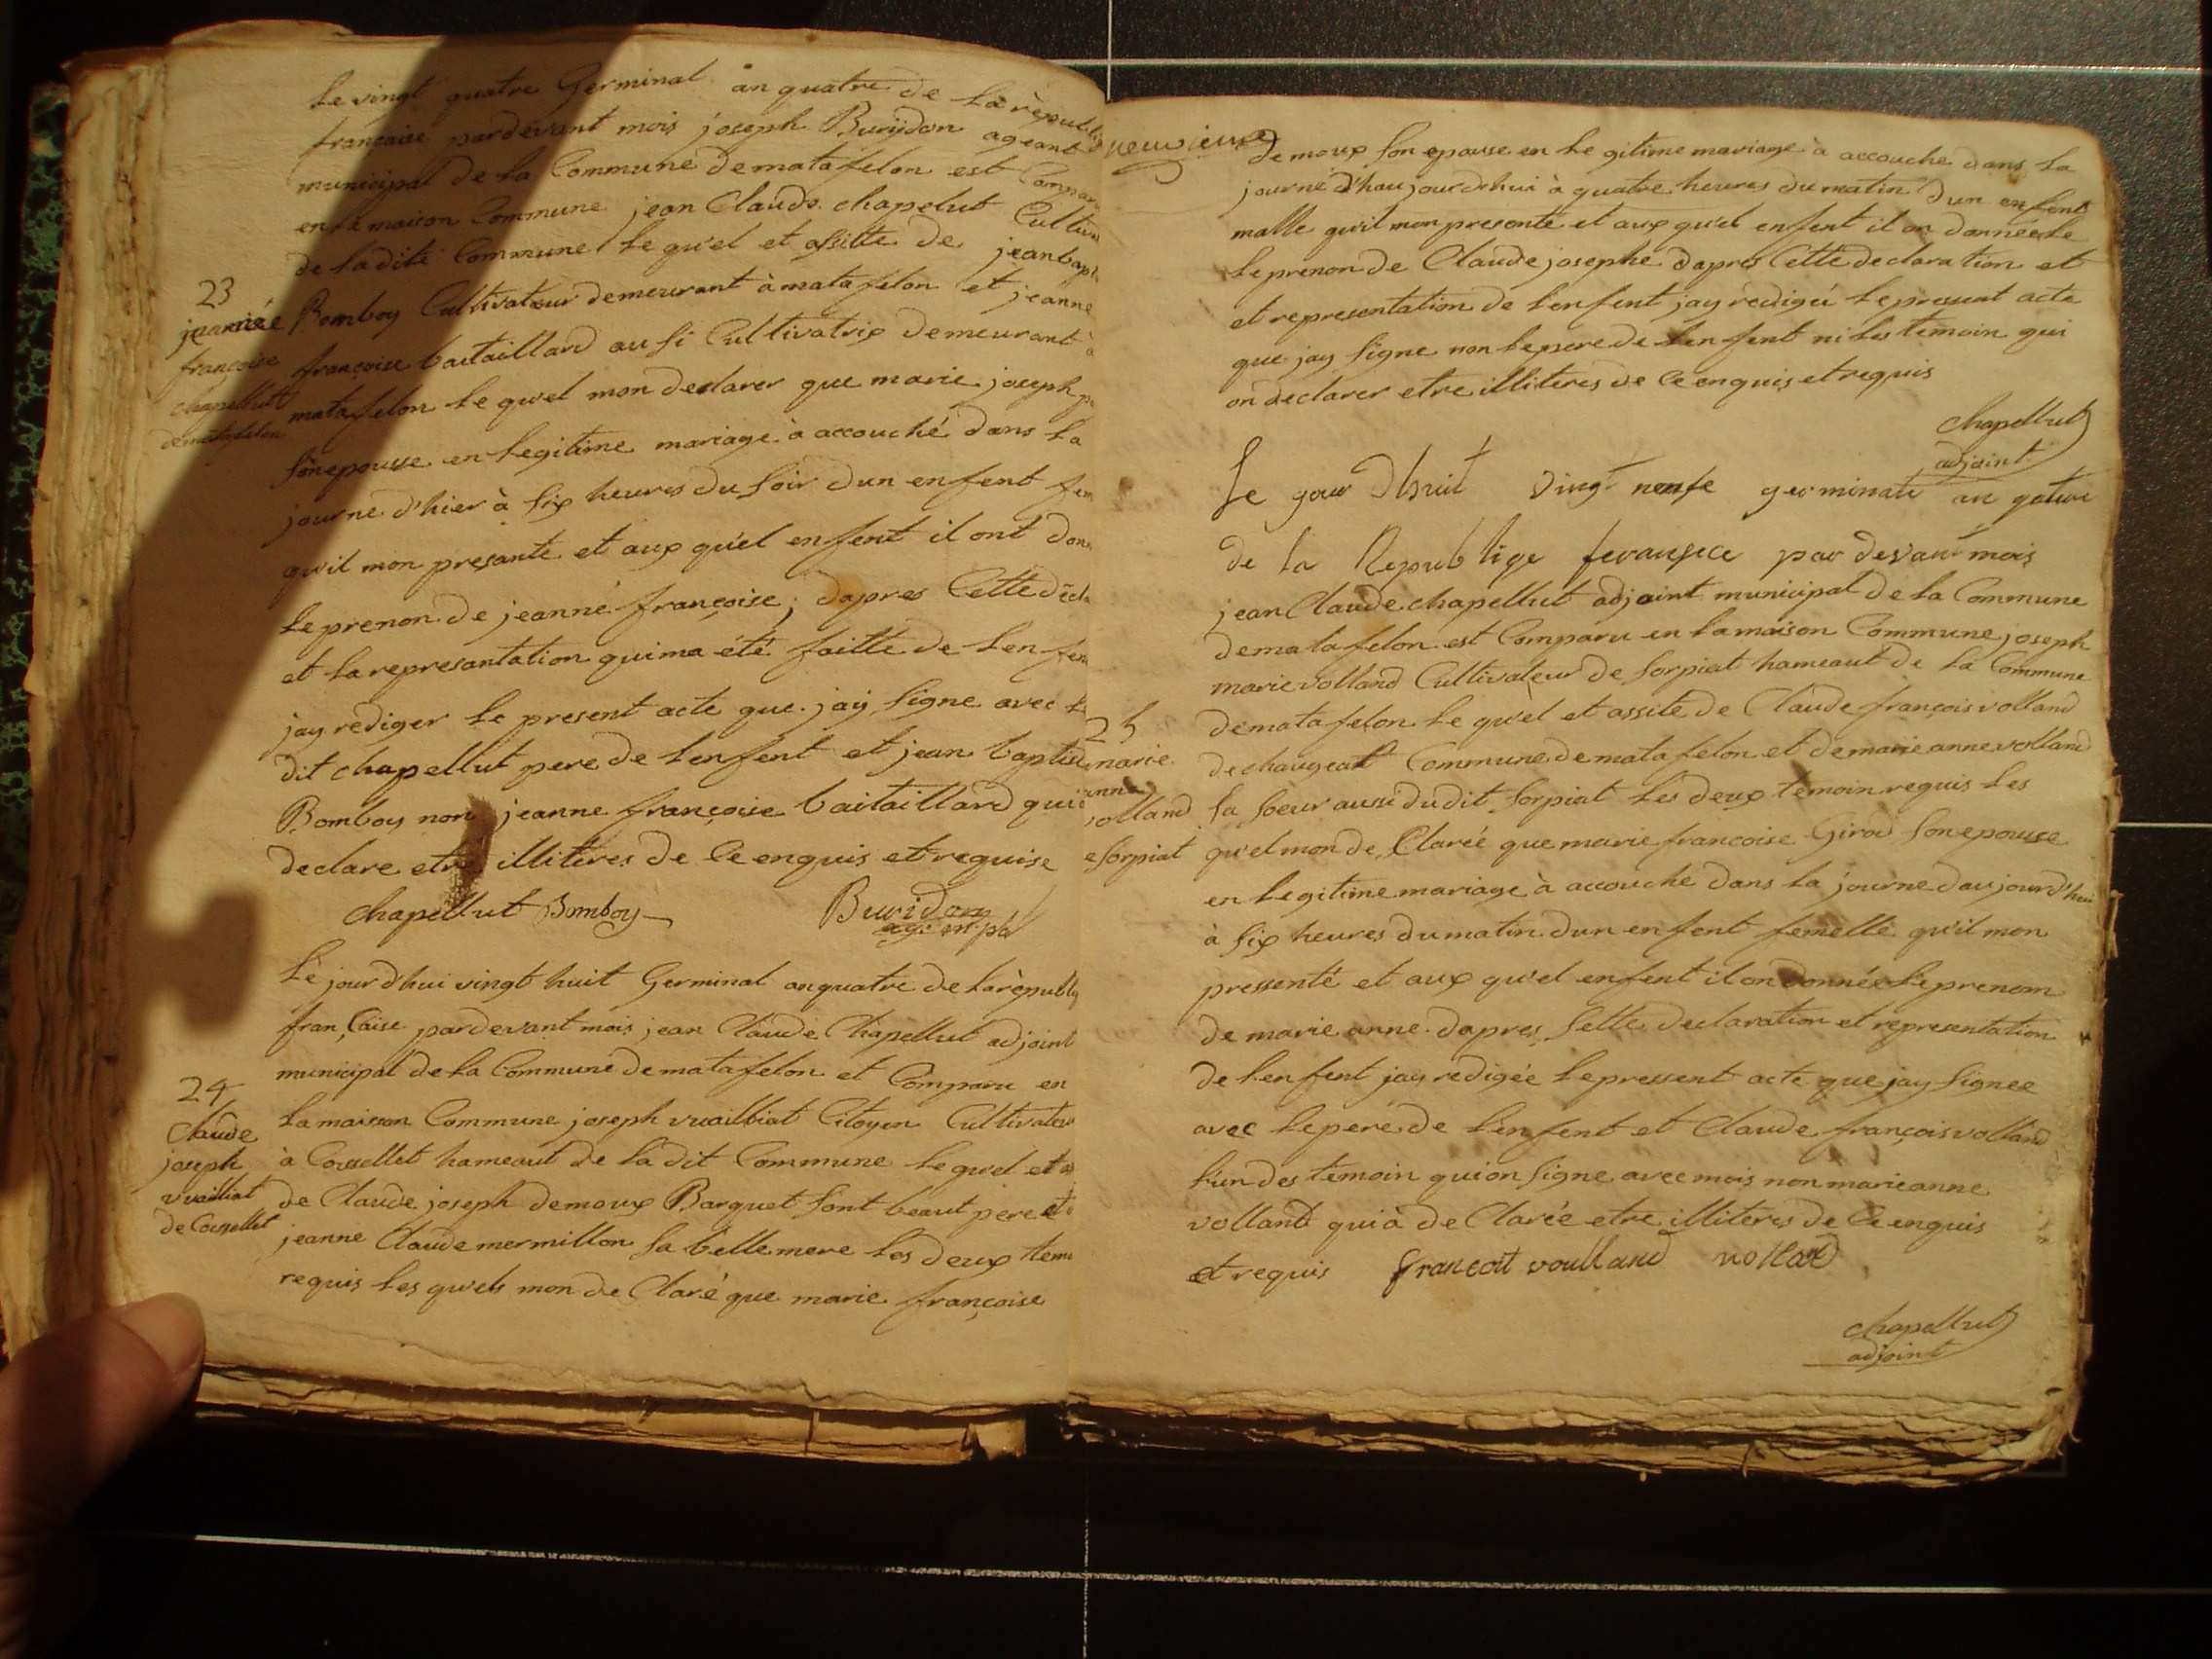 Le vingt quatre Germinal an quatre de la républi
française pardevant mois joseph Buridon ageant
municipal de la Commune de matafelon est Compar
en la maison Commune jean Claude chapelut Cultiva
de la dite Commune le qu'el et assitte de jean bapt
23
jeanne
françoise
chapellut
de matafelon
Bomboy Cultivateur demeurant à matafelon et jeanne
françoise baitaillard ausi Cultivatrix demeurant à
matafelon le qu'el mon declarer que marie joseph
son epousse en legitime mariage à accouché dans la
journe d'hier à six heures du soir dun enfent fem
qu'il mon presante et aux qu'el enfent il ont don
le prenon de jeanne françoise; dapres Cette decla
et la represantation qui ma été faitte de l'enfen
jay rediger le present acte que jay signe avec le
dit chapellut pere de l'enfent et jean baptis
Bomboy non jeanne françoise baitaillard qui
declare etre illiteres de Ce enquis et requise
chapellut Bomboy Buridon
age m.pal
Le jourd'hui vingt huit Germinal an quatre de la républi
française pardevant mois jean Claude Chapellut adjoint
municipal de la Commune de matafelon et Comparu en
24
Claude
joseph
vuailliat
de Coissellet
la maison Commune joseph vuailliat Citoyen Cultivateu
à Coissellet hameaut de la dit Commune le qu'el et a
de Claude joseph demoux Barquet sont beaut pere et
jeanne Claude mermillon sa belle mere les deux tem
requis les qu'els mon de Claré que marie françoise
neuvieme
demoux son epouse en legitime mariage à accouche dans la
journé d'haujourdhui à quatre heures du matin dun enfent
malle qu'il mon presenté et aux qu'el enfent il on donnée le
le prenon de Claude josephe dapres Cette declaration et
et representation de l'enfent jay redigéé le pressent acte
que jay signe non le pere de l'enfent ni les temoin qui
on declarer etre illiteres de Ce enquis et requis
chapellut
adjoint
Le gour dhuit vingt neufe germinale an gatere
de la Republige feransece par devant mois
jean Claude chapellut adjoint municipal de la Commune
de matafelon est Comparu en la maison Commune joseph
marie volland Cultivateur de sorpiat hameaut de la Commune
25
marie
anne
volland
e sorpiat
de matafelon le qu'el et assité de Claude françois volland
de chaugeat Commune de matafelon et de marie anne volland
sa soeur aussi dudit sorpiat les deux temoin requis les
qu'el mon de Claréé que marie francoise Girod son epousse
en legitime mariage à accouche dans la journe daujourd'hui
à six heures du matin dun enfent femelle qu'il mon
pressenté et aux qu'el enfent il on donnée le prenom
de marie anne. dapres sette declaration et representation
de l'enfent jay redigée le pressent acte que jay signee
avec le pere de l'enfent et Claude françois volland
l'un des temoin qui on signe avec mois non marie anne
volland qui à de Clarée etre illiteres de Ce enquis
et requis francoit voulland vollad
chapellut
adjoint